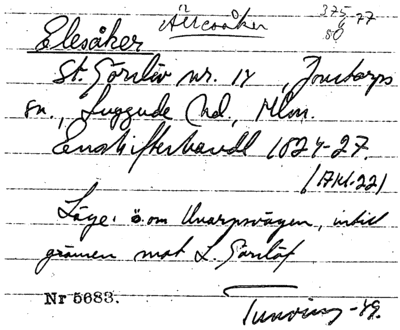 Ällsåker 375-77
Elesåker 80
St. Görslöv nr. 17, Jonstorps
sn., Luggude hd, Mlm.
Enskifteshandl 1824-27.
(Akt. 22)
Läge: ö. om Unarpsvägen, intill
gränsen mot L. Görslöf.
Nr 5683.
Tuneving -49.